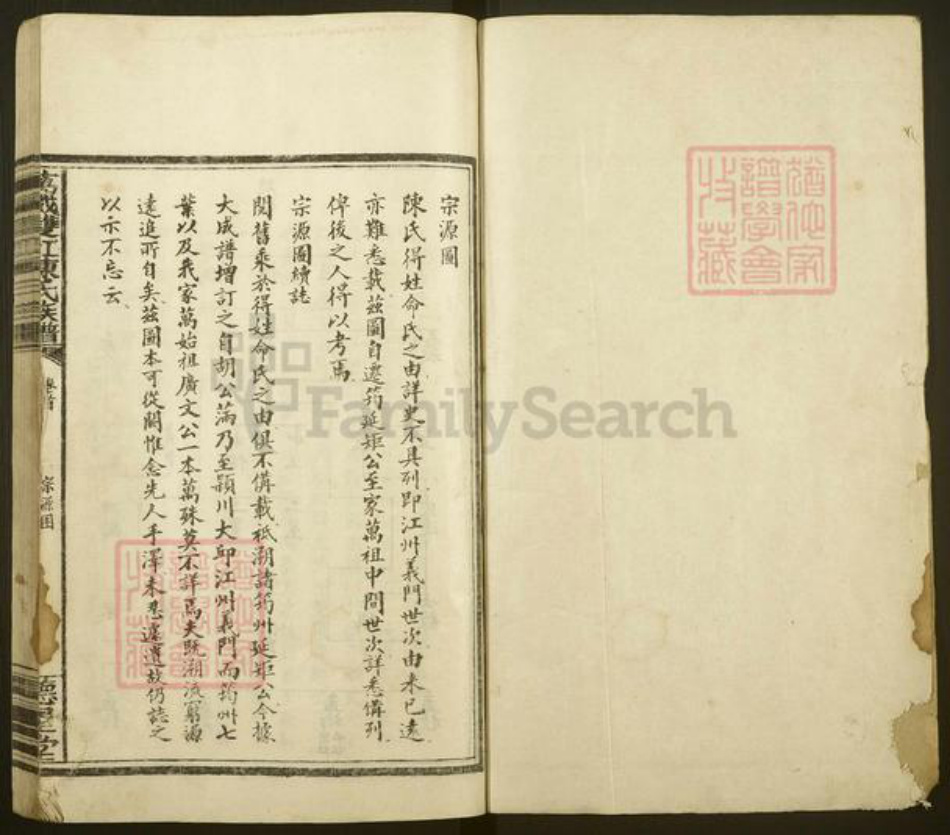 宗源圖
陳氏得姓命氏之由詳史不具列即江州義門世次由来已遠
亦難悉載茲圖自遷筠延矩公至家萬祖中間世次詳悉備列
俾後之人得以考焉
宗源圖續誌
閱舊乘於得姓命氏之由俱不備載祗溯諸筠州延矩公今據
大成譜增訂之自胡公滿乃至潁川大邱江州義門而筠州七
葉以及我家萬始祖廣文公一本萬殊莫不詳焉夫既溯流窮源
遠追所自矣茲圖本可從闕惟念先人手澤未忍遽遺故仍誌之
以示不忘云
雙江陳氏族譜
卷首
宗源圖
德星堂
譜學會
收藏
FamilySearch